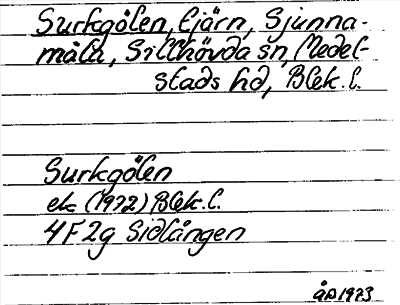 Surkgölen, tjärn, Sjunna-
måla, Sillhövda sn, Medel-
stads hd, Blek. l.
Surkgölen
ek (1972) Blek. l.
4F2g Sidlången
ÅD 1973